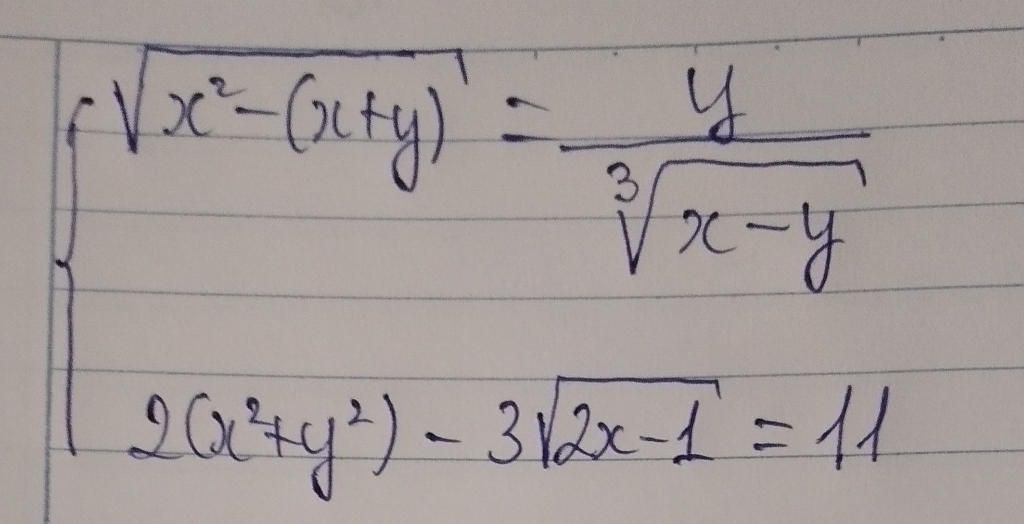 √(x²-(x+y)) = y/∛(x-y)
2(x²+y²) - 3√(2x-1) = 11